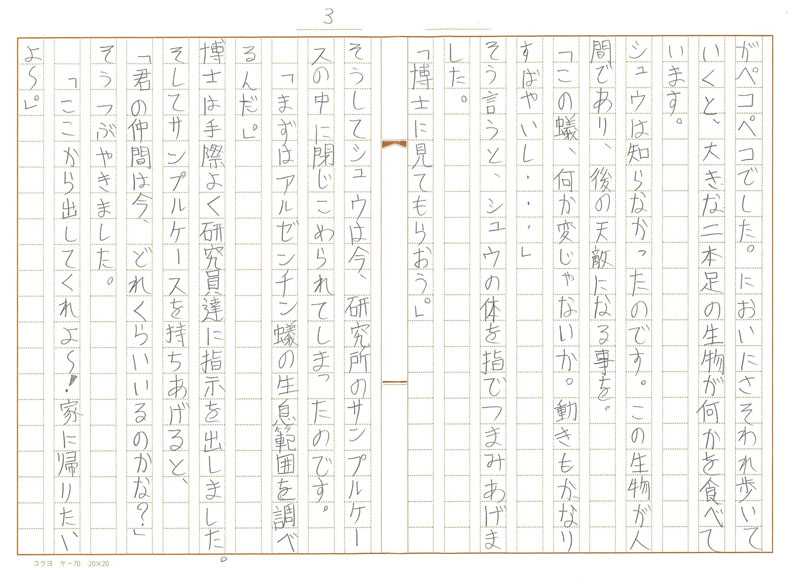 3
がペコペコでした。においにさそわれ歩いて
いくと、大きな二本足の生物が何かを食べて
います。
シュウは知らなかったのです。この生物が人
間であり、後の天敵になる事を。
「この蟻、何か変じゃないか。動きもかなり
すばやいし・・・」
そう言うと、シュウの体を指でつまみあげま
した。
「博士に見てもらおう。」
そうしてシュウは今、研究所のサンプルケー
スの中に閉じこめられてしまったのです。
「まずはアルゼンチン蟻の生息範囲を調べ
るんだ。」
博士は手際よく研究員達に指示を出しました。
そしてサンプルケースを持ちあげると、
「君の仲間は今、どれくらいいるのかな?」
そうつぶやきました。
「ここから出してくれよ〜!家に帰りたい
よ〜。」
コクヨ ケー70 20×20